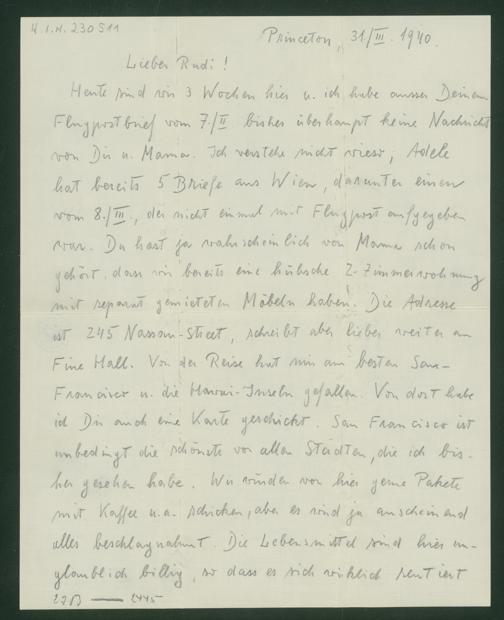 H.I.N. 230511
Princeton, 31/III. 1940.
Lieber Rudi!
Heute sind wir 3 Wochen hier u. ich habe ausser Deinem
Flugpostbrief vom 7./II bisher überhaupt keine Nachricht
von Dir u. Mama. Ich verstehe nicht wieso, Adele
hat bereits 5 Briefe aus Wien, darunter einen
vom 8./III., der nicht einmal mit Flugpost aufgegeben
war. Du hast ja wahrscheinlich von Mama schon
gehört, dass wir bereits eine hübsche 2-Zimmerwohnung
mit separat gemieteten Möbeln haben. Die Adresse
ist 245 Nassau-Street, schreibt aber lieber weiter an
Fine Hall. Von der Reise hat mir am besten San-
Francisco u. die Hawai-Inseln gefallen. Von dort habe
ich Dir auch eine Karte geschickt. San Francisco ist
unbedingt die schönste von allen Städten, die ich bis-
her gesehen habe. Wir würden von hier gerne Pakete
mit Kaffee u.a. schicken, aber es wird ja anscheinend
alles beschlagnahmt. Die Lebensmittel sind hier un-
glaublich billig, so dass es sich wirklich rentiert